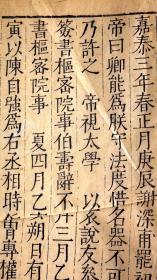 嘉泰三年春正月庚辰謝深甫罷
帝曰卿能為朕守法度惜名器不可
乃許之　帝視太學　以袁說友參
簽書樞密院事伯壽辭不　三月乙
書樞密院事　夏四月乙　朔日有
寅以陳自強為右丞相時　會專權